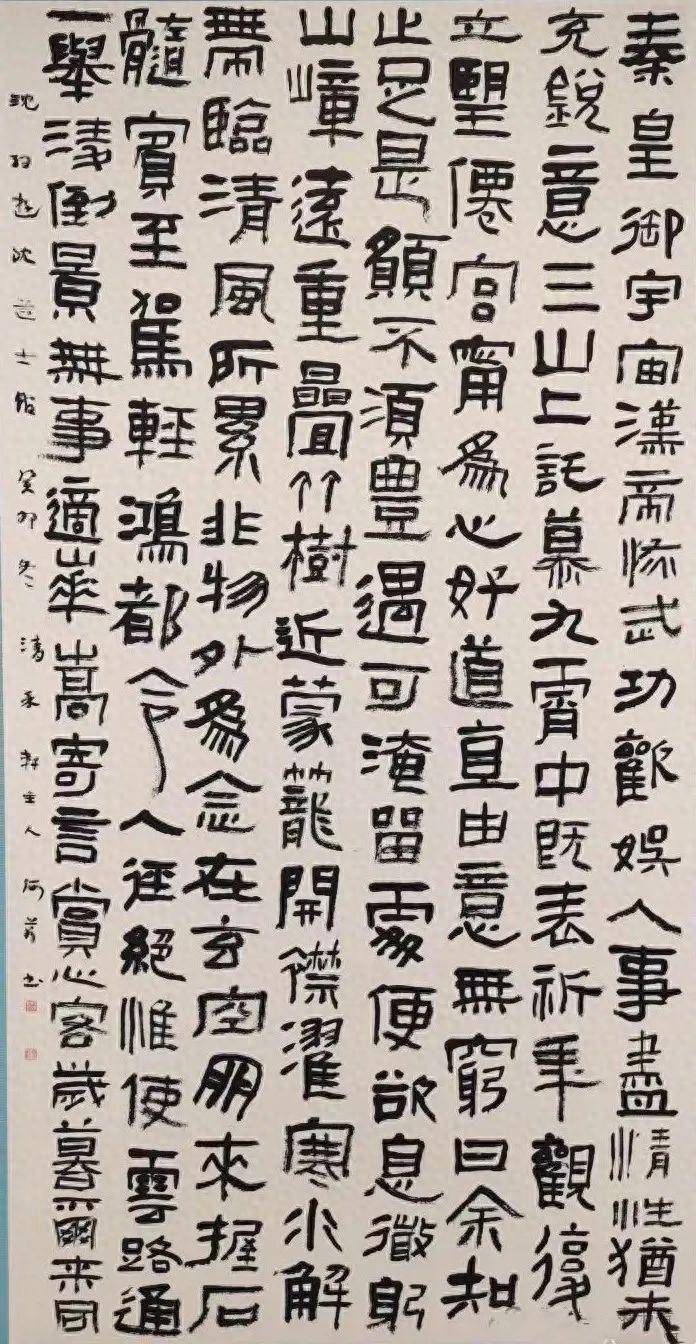 秦皇御宇宙漢帝恢武功歡娛人事盡情性猶未
充銳意三山上託慕九霄中既表祈年觀復
立朢僊宮甯為心好道直由意無窮曰余知
止足是願不須豐遇可淹留處便欲息微躬
山嶂遠重疊竹樹近蒙籠開襟濯寒水解
帶臨清風所累非物外為念在玄空朋來握石
髓賓至駕輕鴻都令人徑絕惟使雲路通
一舉淩倒景無事適崋嵩寄言賞心客歲暮爾來同
沈約遊沈道士館 癸卯冬 清禾軒主人 何 书